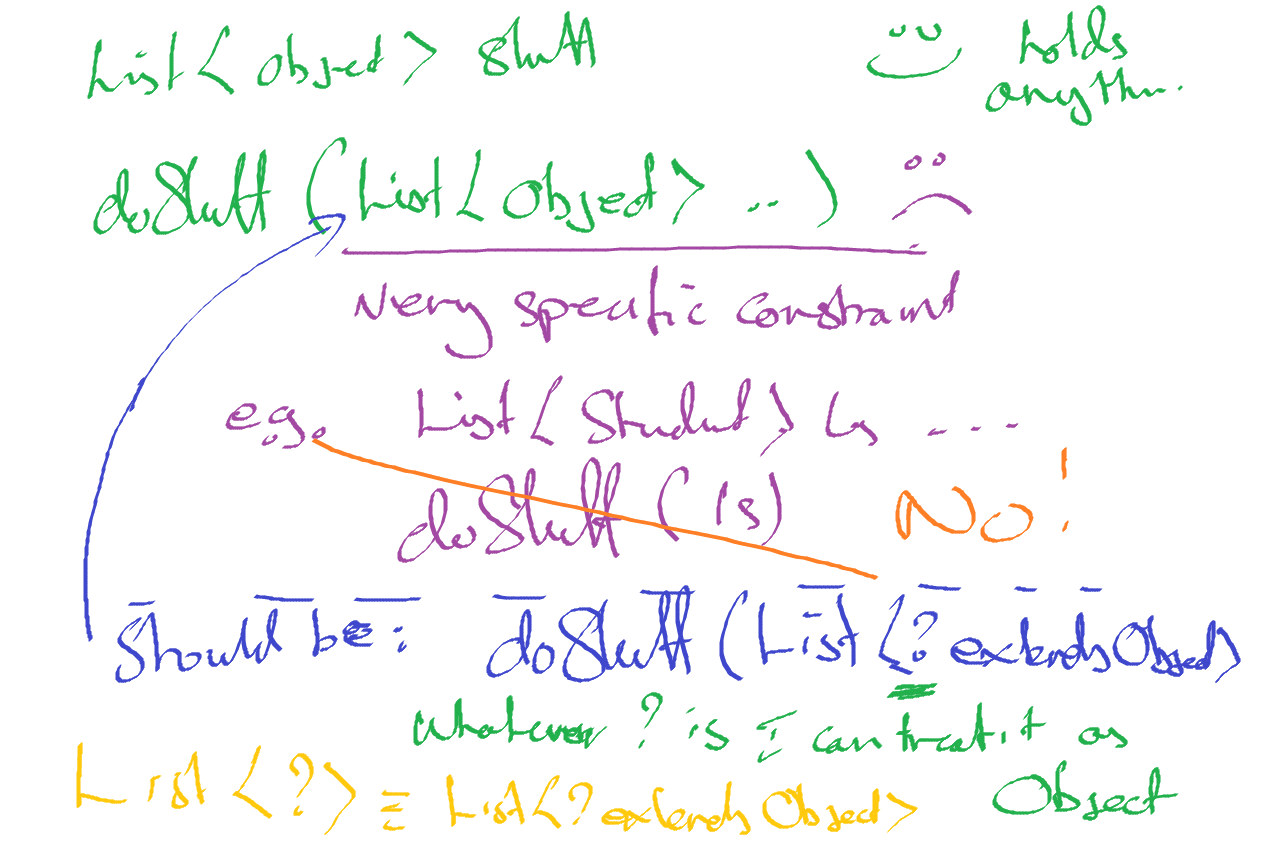 List<Object> stuff
holds
anyth...
doStuff (List<Object> ..)
Very specific constraint
e.g. List<Student> ls ...
doStuff (ls) No!
Should be: doStuff (List<? extends Object>
Whatever ? is I can treat it as
Object
List<?> ≡ List<? extends Object>